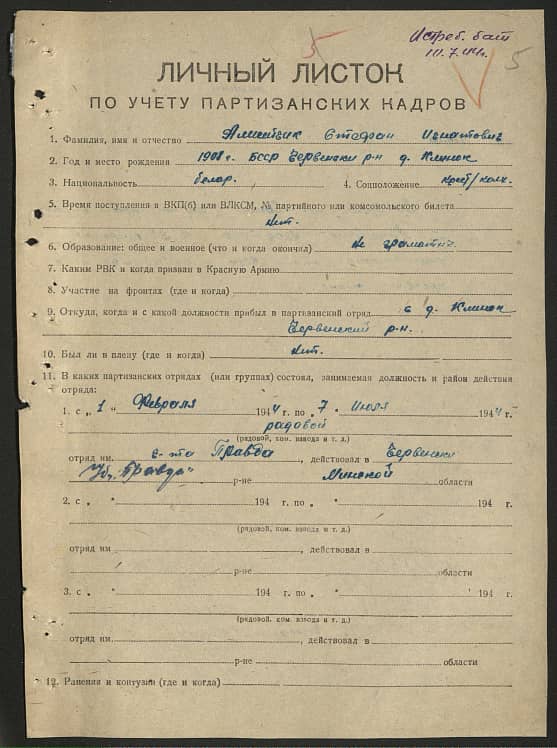 5
Истреб. бат
10.7.44г.
5
ЛИЧНЫЙ ЛИСТОК
ПО УЧЕТУ ПАРТИЗАНСКИХ КАДРОВ
1. Фамилия, имя и отчество Стефан Игнатович
2. Год и место рождения 1908 г. БССР Червенски р-н д. Клинок
3. Национальность белар. 4. Соцположение крест/колх.
5. Время поступления в ВКП(б) или ВЛКСМ, № партийного или комсомольского билета
Нет.
6. Образование: общее и военное (что и когда окончил) Не грамотн.
7. Каким РВК и когда призван в Красную Армию
8. Участие на фронтах (где и когда)
9. Откуда, когда и с какой должности прибыл в партизанский отряд с д. Клинок
Червенский р-н.
10. Был ли в плену (где и когда) Нет.
11. В каких партизанских отрядах (или группах) состоял, занимаемая должность и район действия
отряда:
1. с „ 1 " Февраля 1944 г. по „ 7 " Июля 1944 г.
рядовой
(рядовой, ком. взвода и т. д.)
отряд им. Г-та Правда, действовал в Червенск
Убр. „Правда" р-не Минской области
2. с „ " 194 г. по „ " 194 г.
(рядовой, ком. взвода и т. д.)
отряд им. , действовал в
р-не области
3. с „ " 194 г. по „ " 194 г.
(рядовой, ком. взвода и т. д.)
отряд им. , действовал в
р-не области
12. Ранения и контузии (где и когда)